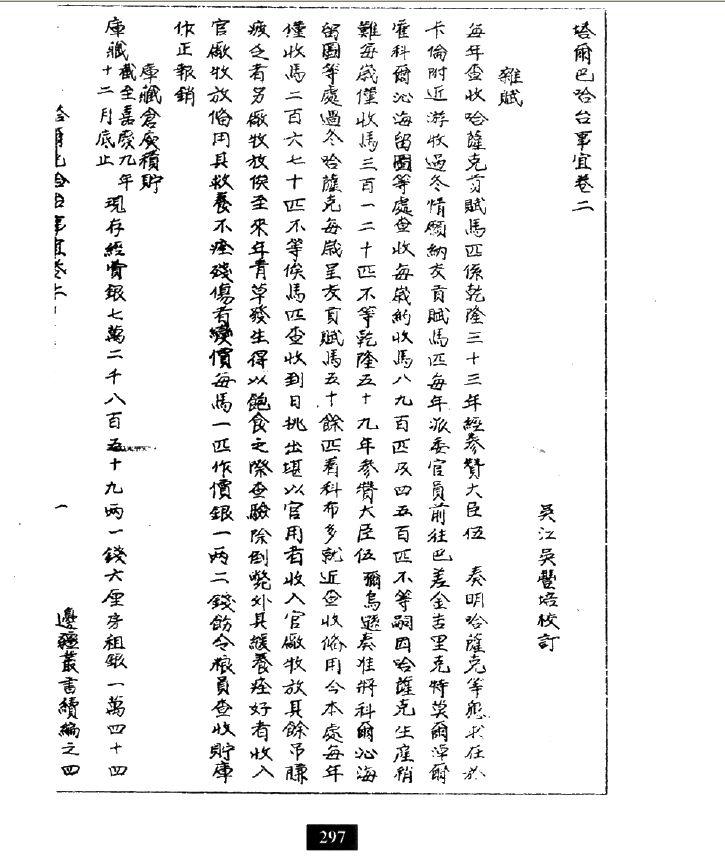 塔爾巴哈台事宜卷二
吳江吳豐培校訂
雜賦
每年查收哈薩克貢賦馬匹係乾隆三十三年經參贊大臣伍 奏明哈薩克等懇求在於
卡倫附近游收過冬情願納交貢賦馬匹每年派委官員前往巴差金吉里克特莫爾淖爾
霍科爾沁海留圖等處查收每歲約收馬八九百匹及四五百匹不等嗣因哈薩克生產稍
難每歲僅收馬三百一二十匹不等乾隆五十九年參贊大臣伍彌烏遜奏准將科爾沁海
留圖等處過冬哈薩克每歲呈交貢賦馬五十餘匹着科布多就近查收備用今本處每年
僅收馬二百六七十匹不等俟馬匹查收到日挑出堪以官用者收入官廠牧放其餘吊臕
疲乏者另廠牧放俟至來年青草發生得以飽食之際查驗除倒斃外其緩養痊好者收入
官廠牧放備用其救養不痊殘傷者變價每馬一匹作價銀一兩二錢飭令粮員查收貯庫
作正報銷
庫藏倉廒積貯
庫藏截至嘉慶九年十二月底止 現存經費銀七萬二千八百五十九兩一錢六厘房租銀一萬四十四
塔爾巴哈台事宜卷二 一 邊疆叢書續編之四
297